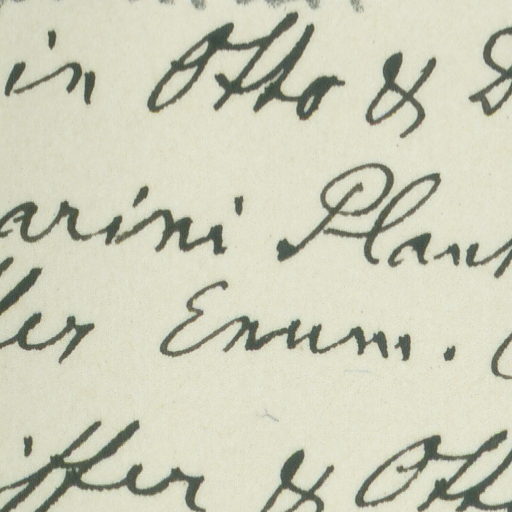 in Otto & D
arini Plant
ler Enum.
iffer & Ott